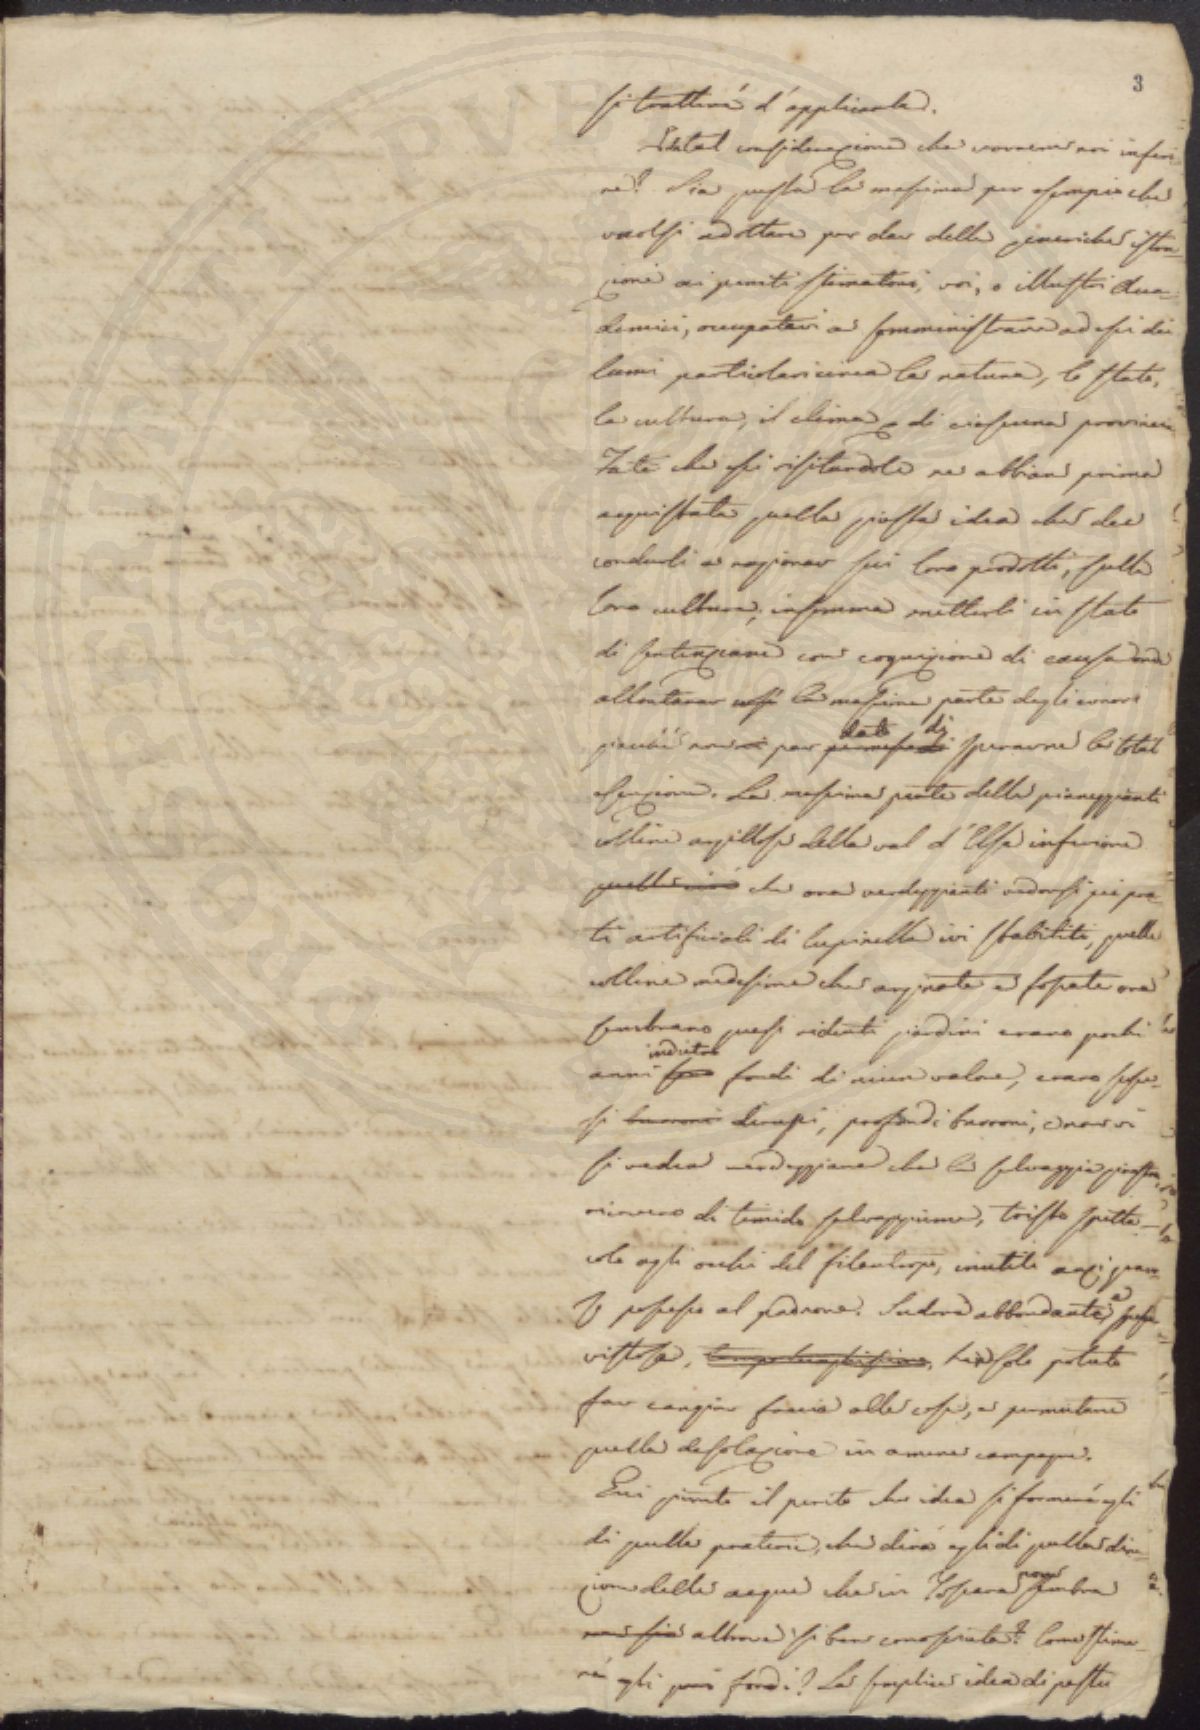 3
si tratterà d'applicarla.
Da tal considerazione che vorremo noi inferi-
re? Sia questa la massima per esempio che
vuolsi adottare per dar delle generiche istru-
zioni ai periti stimatori, voi, o illustri Acca-
demici, occupatevi a somministrare ad essi dei
lumi particolari circa la natura, lo stato,
la cultura, il clima di ciascuna provincia
Fate che essi visitandole ne abbian prima
acquistata quella giusta idea che dee
condurli a ragionar sui loro prodotti, sulla
loro cultura; insomma metterli in stato
di sentenziare con cognizione di causa onde
allontanar così la massima parte degli errori
giacché non per permesso di dato di sperarne la total
esenzione. La massima parte delle pianeggianti
colline argillose della val d'Elsa inferiore
che ora verdeggianti vedonsi pei pra-
ti artificiali di lupinella ivi stabiliti, quelle
colline medesime che arginate e fossate ora
sembrano quasi ridenti giardini erano pochi
anni indietro fondi di niun valore, erano scosce-
si burroni dirupi, profondi burroni, e non vi
si vedea verdeggiare che la selvaggia ginestra,
ricovero di timido selvaggiume, tristo spetta-
colo agli occhi del filantropo, inutile anzi grave
possesso al padrone. Sudore abbondante, e spesa
vistosa, ha solo potuto
far cangiar faccia alle cose, e permutare
quella desolazione in amene campagne.
Qui giunto il perito che idea si formerà egli
di quelle praterie, che dirà egli di quella dire-
zione delle acque che in Toscana non sembra
altrove sì ben conosciuta? Come stime-
rà egli quei fondi? La semplice idea di pastu